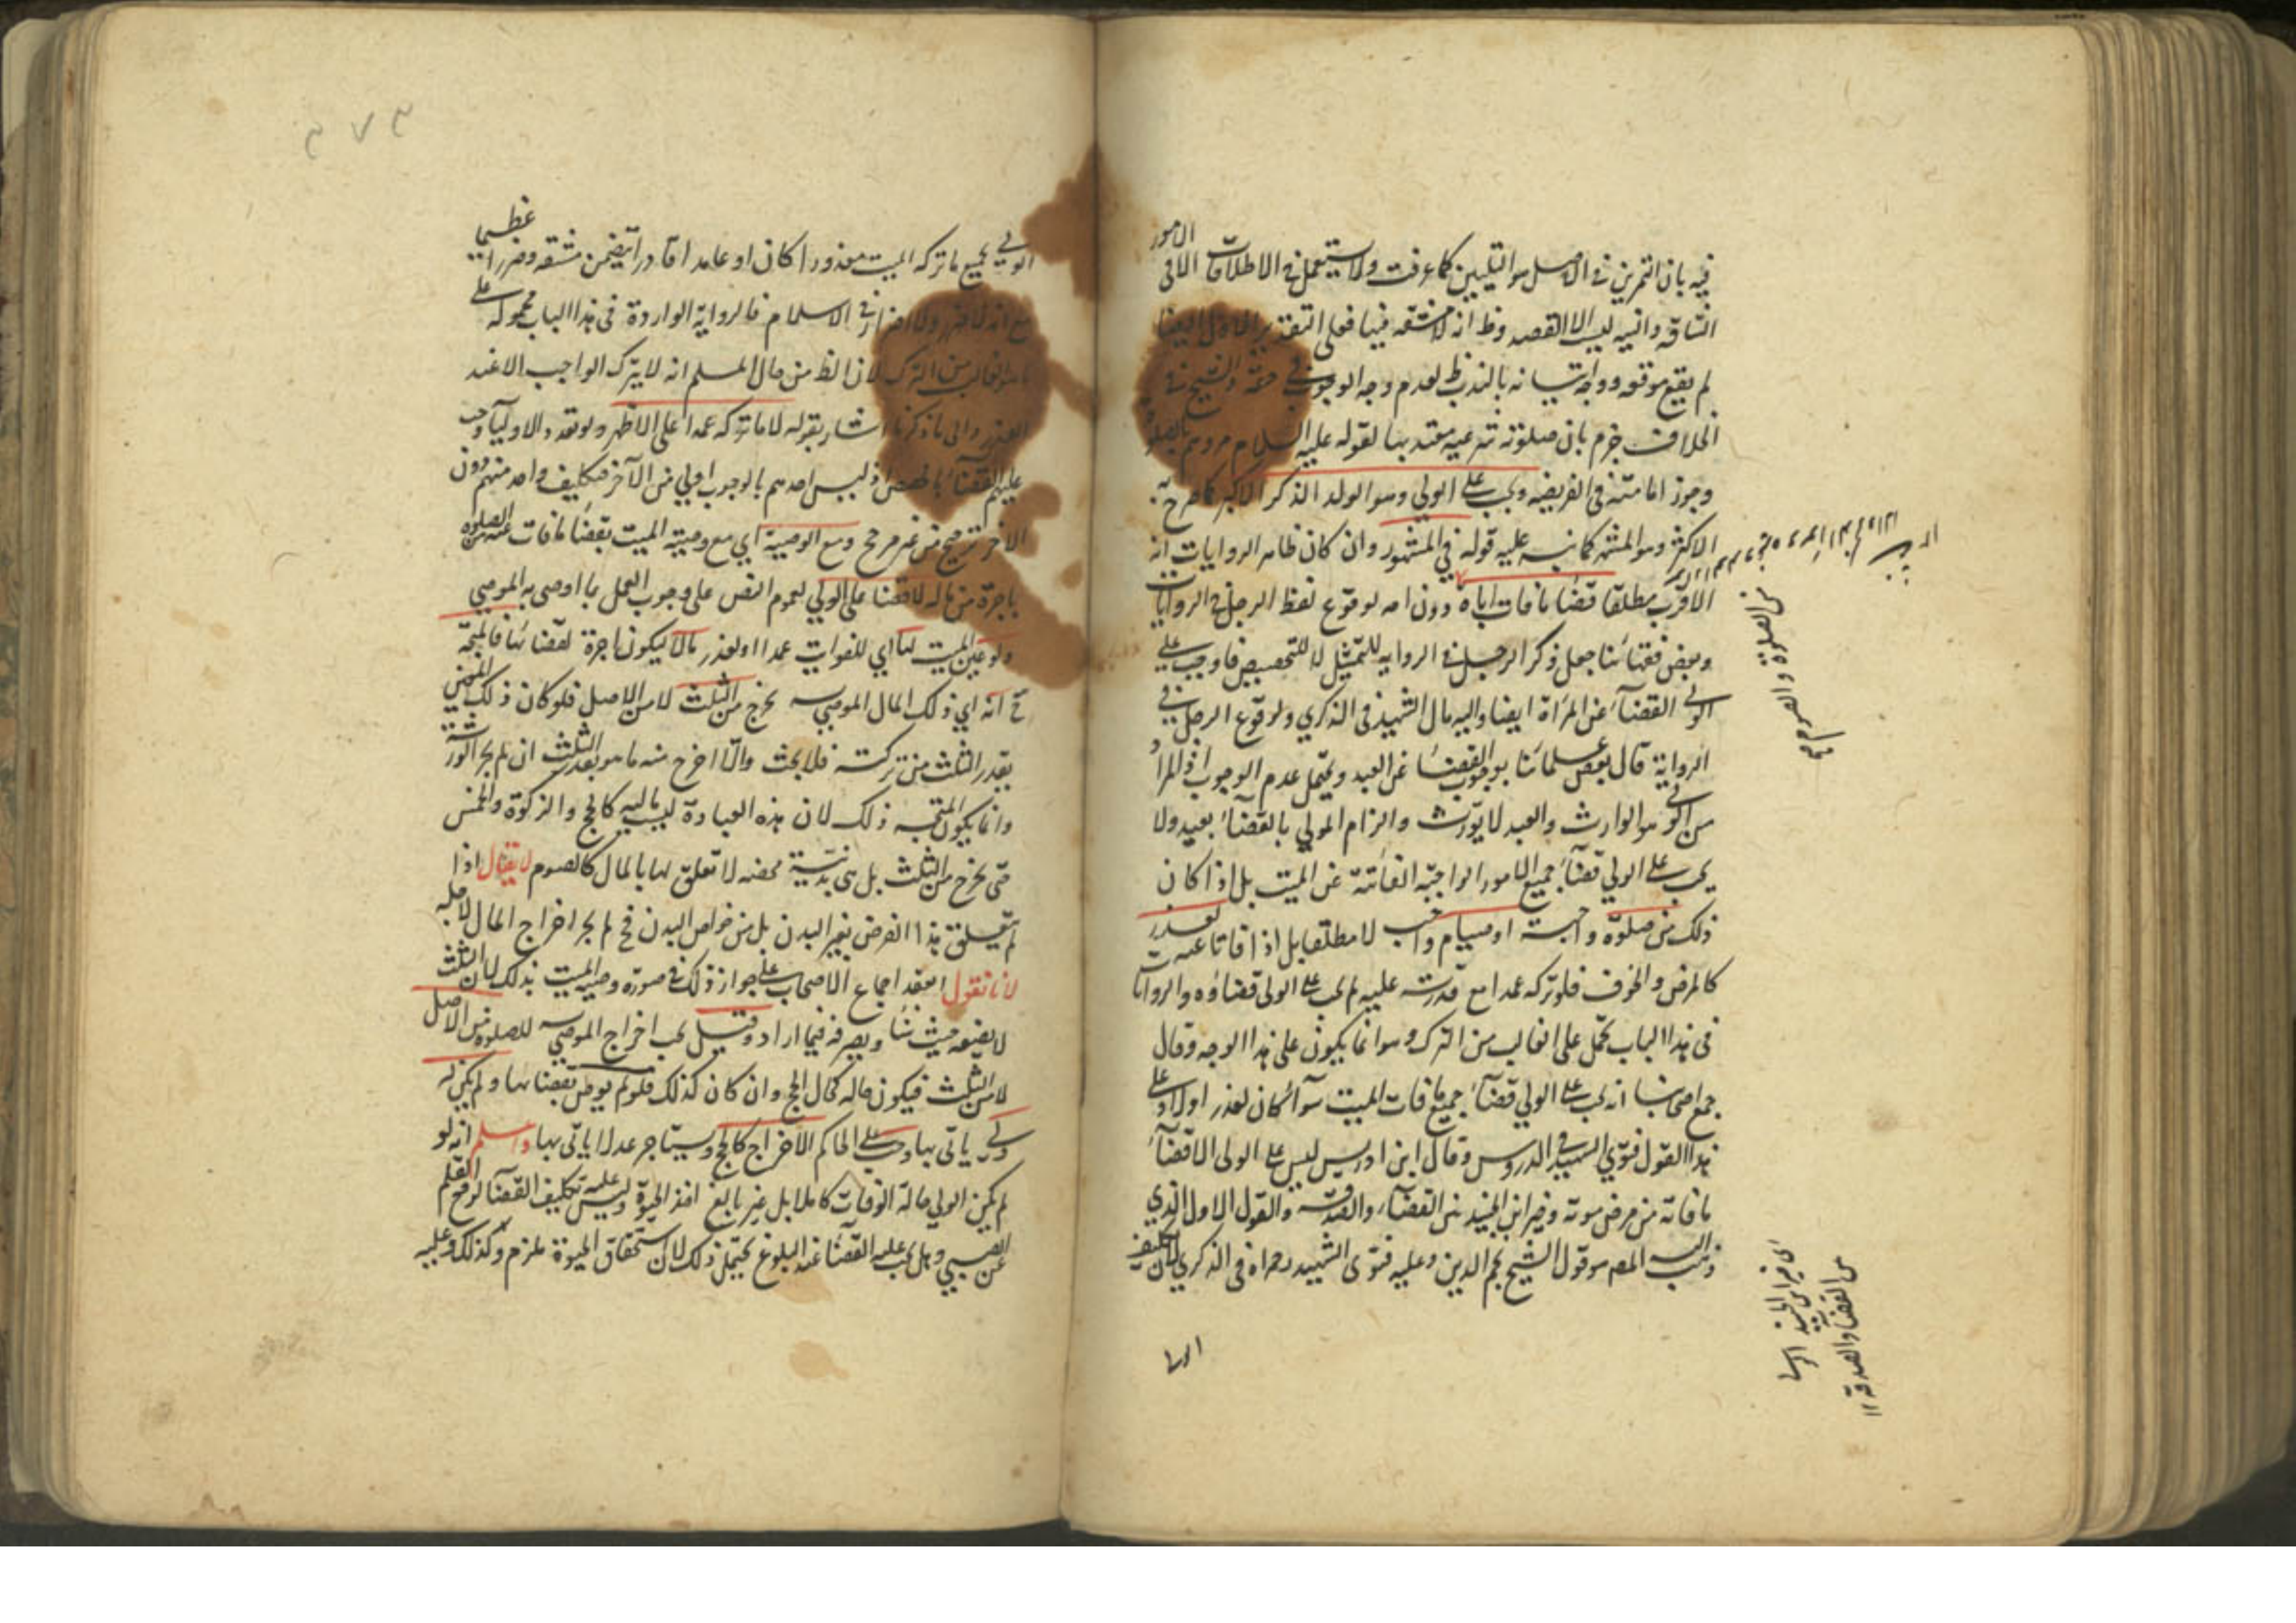 فيه بان التمرين في الاصل هو التليين كما عرفت ولا يستعمل في الاطلاقات الا في الامور
الشاقه وانيه ليس الا القصد وظ انه لا مشقه فيها فعلى التقدير
لم يقع موقعه ووجه اتيانه بالندب ظ لعدم وجه الوجوب في حقه والشيخ في
الخلاف جزم بان صلوته شرعيه معتد بها لقوله عليه السلام مروهم بالصلوة
وجوز امامته في الفريضه ويجب على الولي وهو الولد الذكر الاكبر كما صرح به
الاكثر وهو المشهور كما نبه عليه قوله في المشهور وان كان ظاهر الروايات انه
الاقرب مطلقا قضا ما فات اباه دون امه لوقوع لفظ الرجل في الروايات
وبعض فقهائنا جعل ذكر الرجل في الروايه للتمثيل لا للتخصيص فاوجب على
الولي القضاء عن المراة ايضا واليه مال الشهيد في الذكري ولوقوع الرجل في
الرواية قال بعض علمائنا بوجوب القضا عن العبد ويحتمل عدم الوجوب اذ المراد
من الولي هو الوارث والعبد لا يورث والزام المولي بالقضاء بعيد ولا
يجب على الولي قضاء جميع الامور الواجبة الفائتة عن الميت بل اذا كان
ذلك من صلوة واجبة او صيام واجب لا مطلقا بل اذا فاتا عنه لعذر
كالمرض والخوف فلو تركه عمدا مع قدرته عليه لم يجب على الولي قضاؤه والروايات
في هذا الباب تحمل على الغالب من الترك وهو انما يكون على هذا الوجه وقال
جمع اصحابنا انه يجب على الولي قضاء جميع ما فات الميت سوآ كان لعذر اولا وعلى
هذا القول فتوي الشهيد في الدروس وقال ابن ادريس ليس على الولي الا قضاء
ما فاته من مرض موته وخير ابن الجنيد بين القضاء والصدقة والقول الاول الذي
ذهب اليه المصه هو قول الشيخ نجم الدين وعليه فتوى الشهيد رحمه الله في الذكري لان تكليف
من الصلوة والصوم
اي خير ابن الجنيد
بين القضا والصدقة
الولي بجميع ما تركه الميت معذورا كان او عامدا قادرا يتضمن مشقه وضررا عظيما
مع انه لا ضرر ولا اضرار في الاسلام فالرواية الواردة في هذا الباب محمولة على
ما هو الغالب من الترك لان الظ من حال المسلم انه لا يترك الواجب الا عند
العذر والى ما ذكرنا اشار بقوله لا ما تركه عمدا على الاظهر ولو تعدد الاوليآ وجب
عليهم القضاء بالحصص اذ ليس احدهم بالوجوب اولي من الآخر فتكليف واحد منهم دون
الآخر ترجيح من غير مرجح ومع الوصية اي مع وصية الميت بقضا ما فات عنه من الصلوة
باجرة من ماله لا قضا على الولي لعموم النص على وجوب العمل بما اوصى به الموصي
ولو عين الميت لها اي للفوايت عمدا او لعذر مالا ليكون اجرة لقضائها فالمتجه
ح انه اي ذلك المال الموصي به يخرج من الثلث لا من الاصل فلو كان ذلك
بقدر الثلث من تركته فلا بحث والا اخرج منه ما هو بقدر الثلث ان لم يجز الورثة
وانما يكون المتجه ذلك لان هذه العبادة ليست ماليه كالحج والزكوة والخمس
حتى يخرج من الثلث بل هي بدنية محضه لا تعلق لها بالمال كالصوم لا يقال اذا
لم يتعلق هذا الفرض بغير البدن بل من خواص البدن فح لم يجز اخراج المال لاجله
لانا نقول انعقد اجماع الاصحاب على جواز ذلك في صورة وصية الميت بذلك لان الثلث
له يضعه حيث شا ويصرفه فيما اراد وقيل يجب اخراج الموصي به للصلوة من الاصل
لا من الثلث فيكون حاله كحال الحج وان كان كذلك فلو لم يوص بقضائها ولم يكن له
ولي ياتي بها وجب على الحاكم الاخراج كالحج ويستاجر عدلا ياتى بها واعلم انه لو
لم يكن الولي حالة الوفات كاملا بل غير بالغ اخذ الحبوة وليس عليه تكليف القضا لرفع القلم
عن الصبي وهل يجب عليه القضا عند البلوغ يحتمل ذلك لان استحقاق الحبوة ملزم وكذلك وعليه